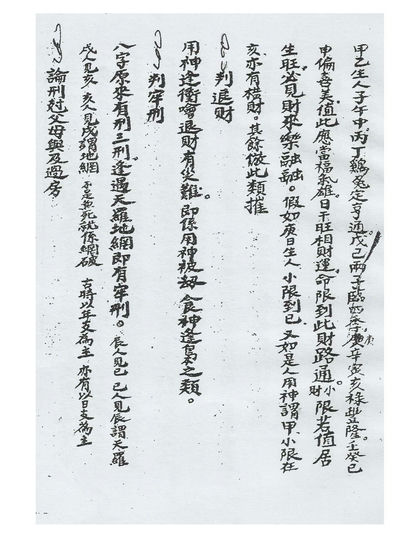 甲乙生人子午中。丙丁鷄兔定亨通。戊己兩子臨如巳。庚辛寅亥祿豐隆。壬癸巳
申偏喜美。值此應當福氣雄。日干旺相財運。命限到此財路通。小限若值居
生旺。必見財來樂融融。假如庚日生人。小限到巳。又如是人用神謂甲。小限在
亥。亦有橫財。其餘倣此類推
判退財
用神逢衝會退財有災難。即係用神被刼。食神逢梟之類。
判牢刑
八字原來有刑三刑。逢遇天羅地網即有牢刑。辰人見巳 巳人見辰謂天羅
戌人見亥 亥人見戌謂地網 古時以年支為主 亦有以日支為主
論刑尅父母與及過房